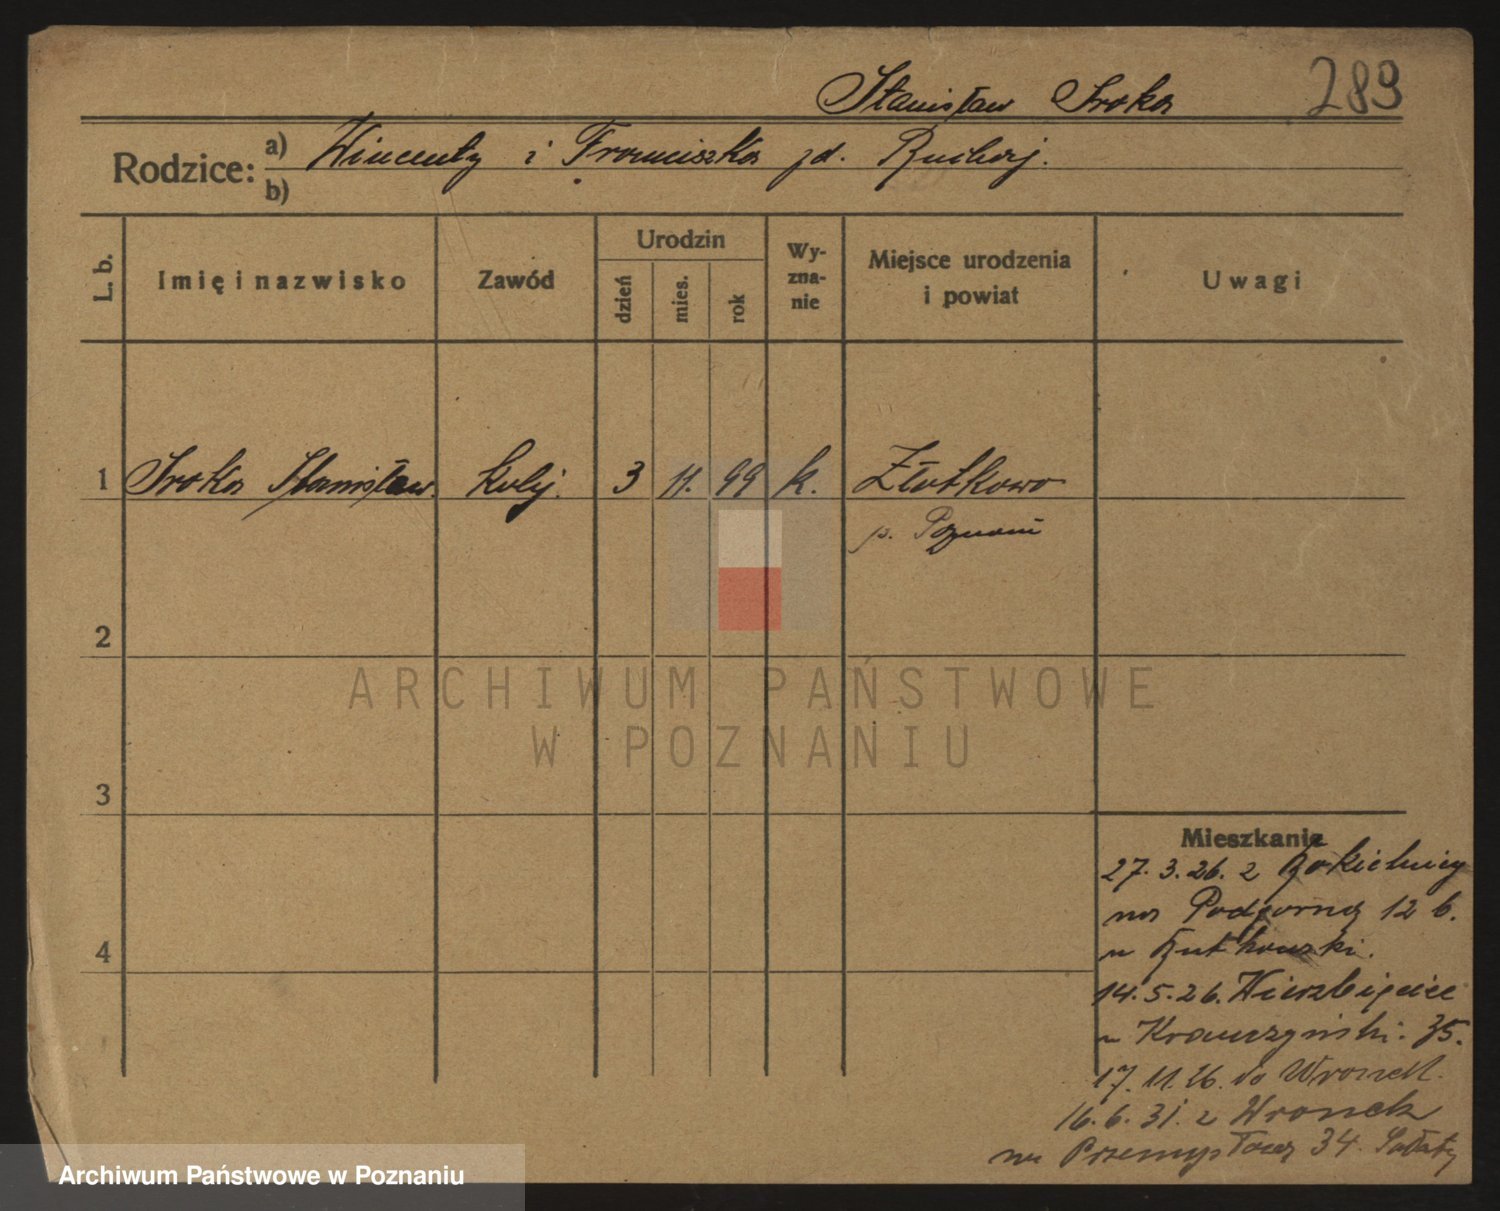 Stanisław Sroka
289
Rodzice: a) Wincenty i Franciszka zd. Buchaj.
b)
L. b.
Imię i nazwisko
Zawód
Urodzin
dzień
mies.
rok
Wy-
zna-
nie
Miejsce urodzenia
i powiat
Uwagi
1 Sroka Stanisław. kolej. 3 11. 99 k. Złotkowo
p. Poznań
2
ARCHIWUM PAŃSTWOWE
W POZNANIU
3
Mieszkanie
27. 3. 26. z Rokietnicy
na Podgórną 12 b.
u Rutkowski.
4
14. 5. 26. Wierzbięcice
u Krawczyński. 35.
17. 11. 26. do Wronek.
16. 6. 31. z Wronek
na Przemysłową 34.
Archiwum Państwowe w Poznaniu